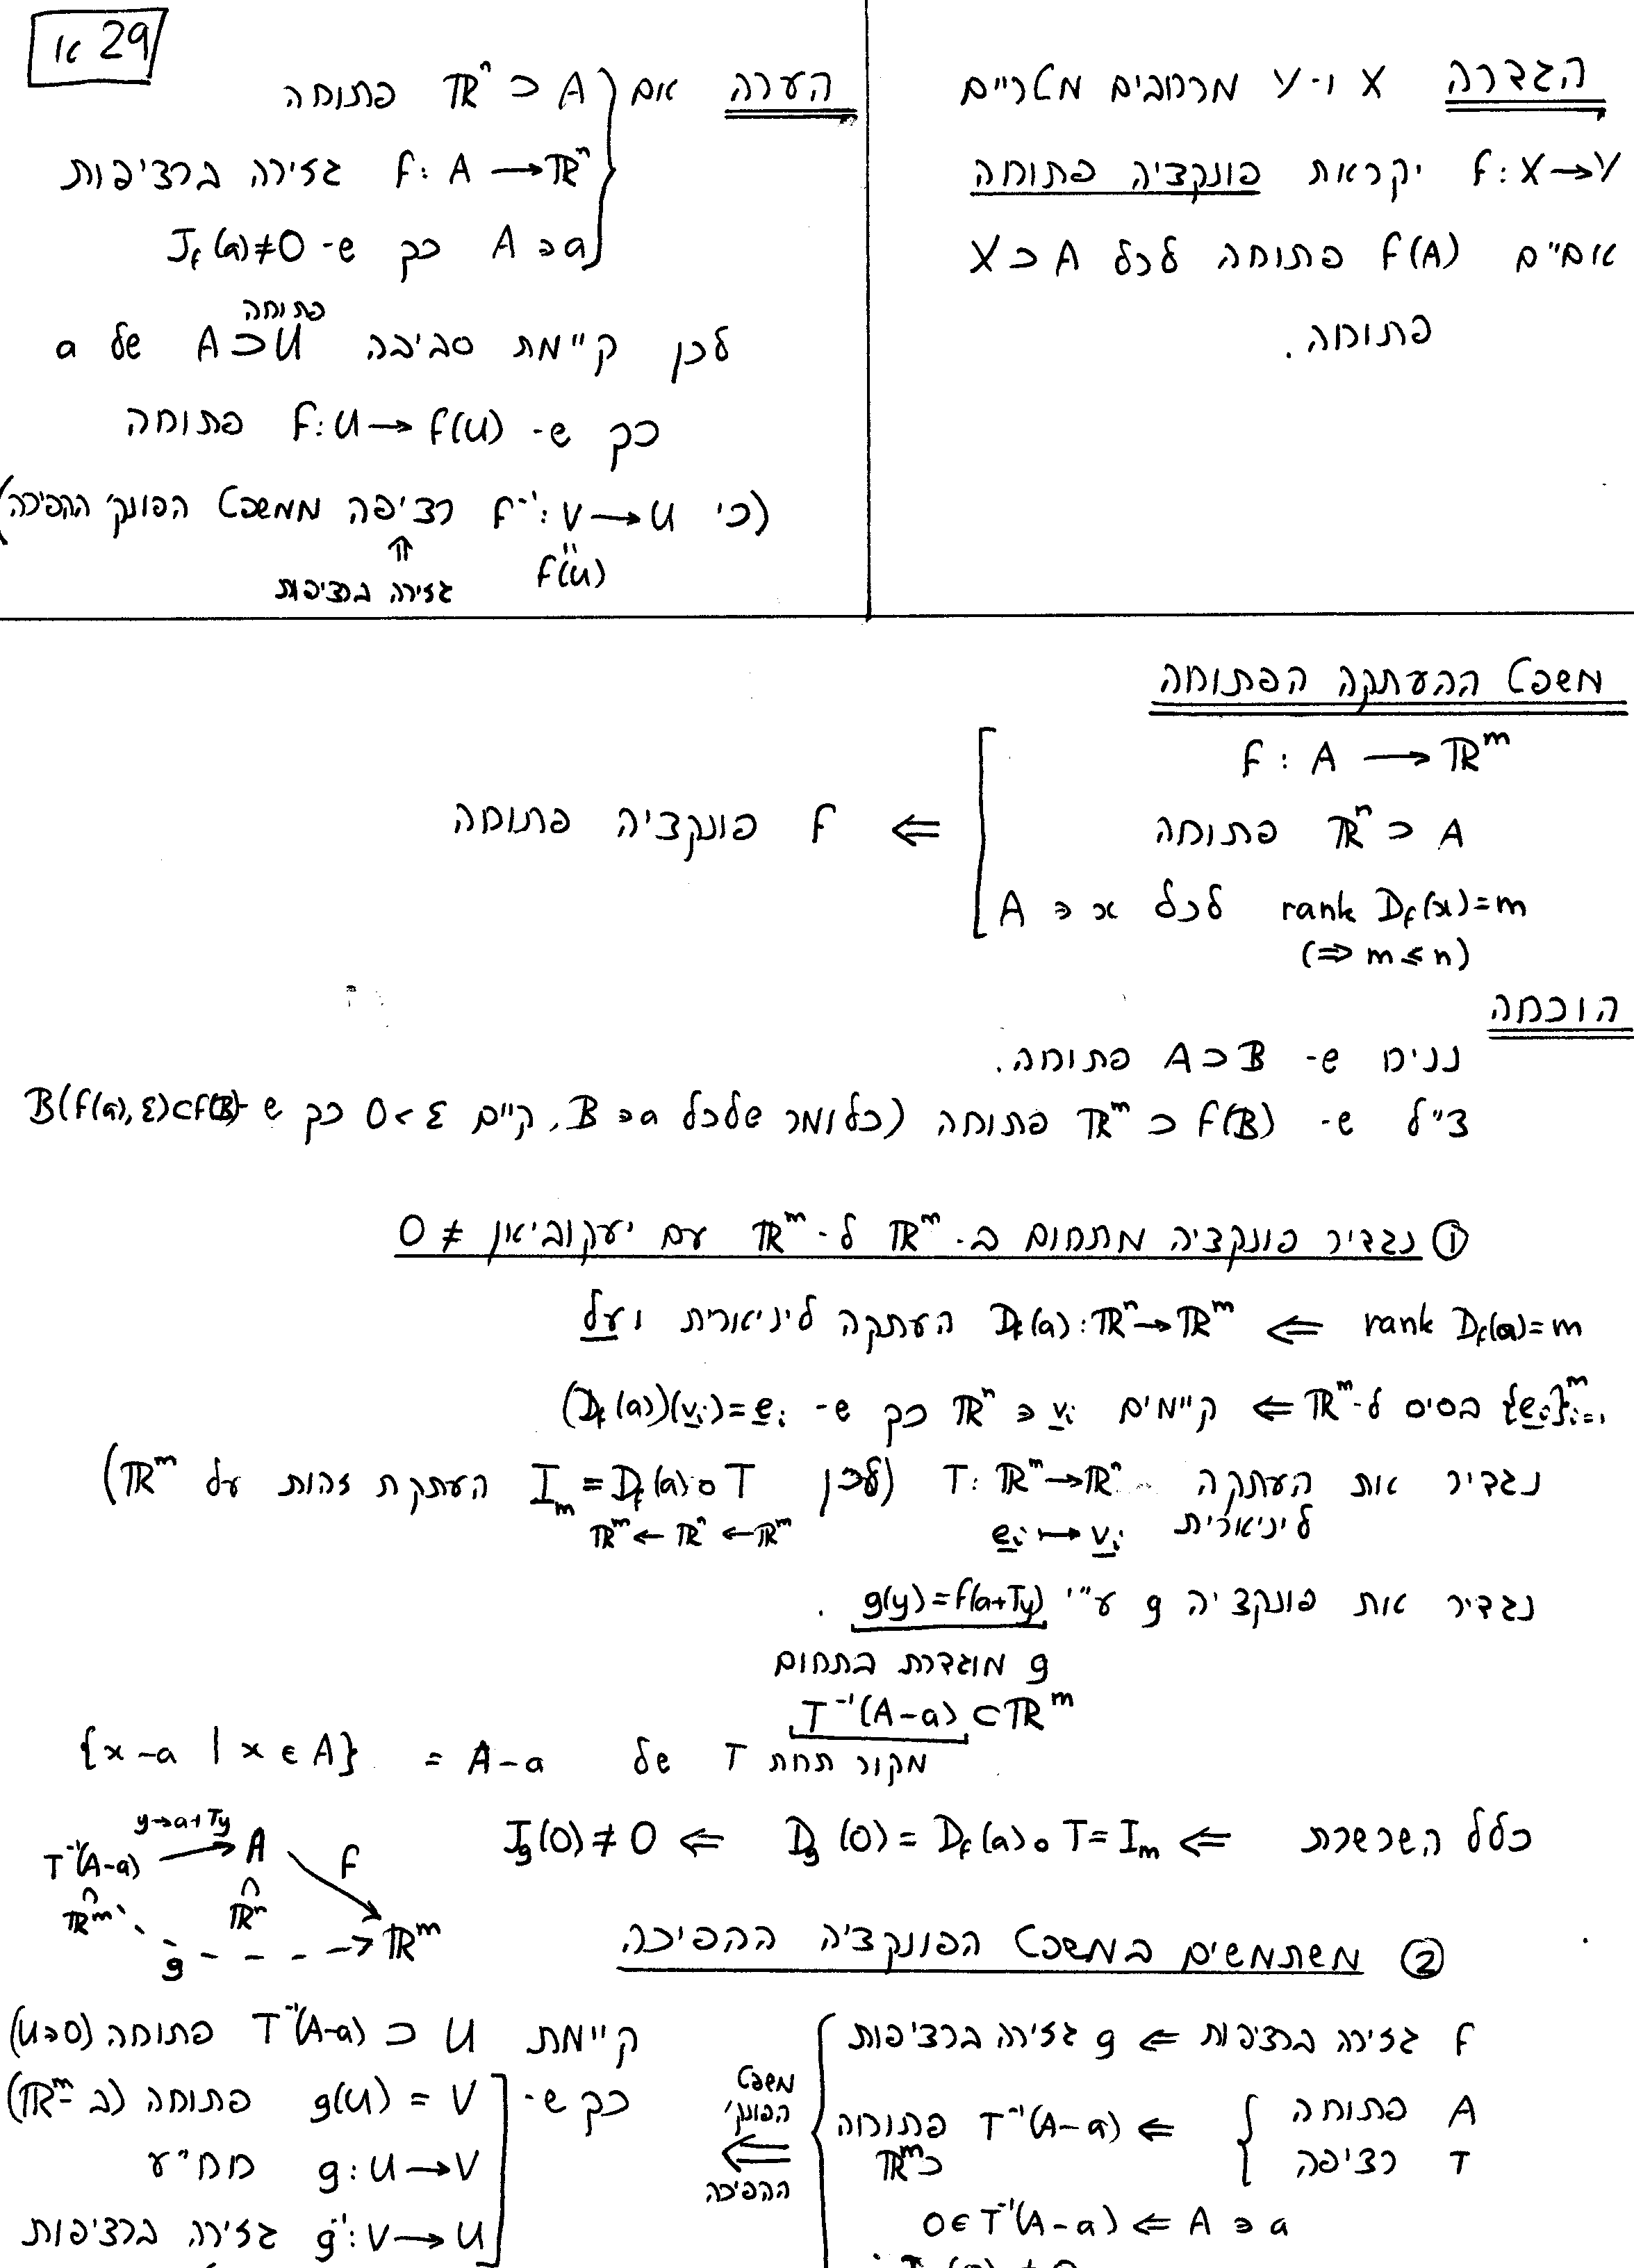 29 א
הגדרה X ו-Y מרחבים מטריים
f: X→Y יקראת פונקציה פתוחה
אם"ם f(A) פתוחה לכל X⊃A
פתוחה.
הערה אם A ⊂ ℝⁿ פתוחה
f: A → ℝⁿ גזירה ברציפות
A∋a כך ש- J_f(a)≠0
פתוחה
לכן קיימת סביבה A⊃U של a
כך ש- f: U → f(U) פתוחה
(כי f⁻¹: V → U רציפה ממשפט הפונק' ההפיכה)
⇑ " f(U)
גזירה ברציפות
משפט ההעתקה הפתוחה
f : A → ℝᵐ
A ⊂ ℝⁿ פתוחה
rank D_f(x)=m לכל A ∋ x
(⇒ m ≤ n)
⇐ f פונקציה פתוחה
הוכחה
נניח ש- A⊃B פתוחה.
צ"ל ש- f(B) ⊂ ℝᵐ פתוחה (כלומר שלכל B∋a, קיים 0<ε כך ש- B(f(a),ε)⊂f(B)
① נגדיר פונקציה מתחום ב-ℝᵐ ל-ℝᵐ עם יעקוביאן ≠ 0
rank D_f(a)=m ⇐ D_f(a): ℝⁿ→ℝᵐ העתקה ליניארית ועל
{e_i}ᵐ_{i=1} בסיס ל-ℝᵐ ⇐ קיימים ℝⁿ ∋ v_i כך ש- (D_f(a))(v_i)=e_i
נגדיר את העתקה T: ℝᵐ→ℝⁿ (לכן I_m = D_f(a)∘T העתקת זהות על ℝᵐ)
ליניארית e_i ↦ v_i ℝᵐ ← ℝⁿ ← ℝᵐ
נגדיר את פונקציה g ע"י g(y)=f(a+Ty) .
g מוגדרת בתחום
T⁻¹(A-a) ⊂ ℝᵐ
מקור תחת T של A-a = {x-a | x ∈ A}
כלל השרשרת ⇐ D_g(0) = D_f(a)∘T = I_m ⇐ J_g(0) ≠ 0
y→a+Ty
T⁻¹(A-a) → A f
∩ ∩
ℝᵐ ℝⁿ
g → ℝᵐ
② משתמשים במשפט הפונקציה ההפיכה
f גזירה ברציפות ⇐ g גזירה ברציפות
A פתוחה
T רציפה
⇐ T⁻¹(A-a) פתוחה
⊂ℝᵐ
A ∋ a ⇒ 0∈T⁻¹(A-a)
משפט
הפונק'
⇐
ההפיכה
קיימת U ⊂ T⁻¹(A-a) פתוחה (U∋0)
כך ש- g(U) = V פתוחה (ב-ℝᵐ)
g: U→V חח"ע
g⁻¹: V→U גזירה ברציפות